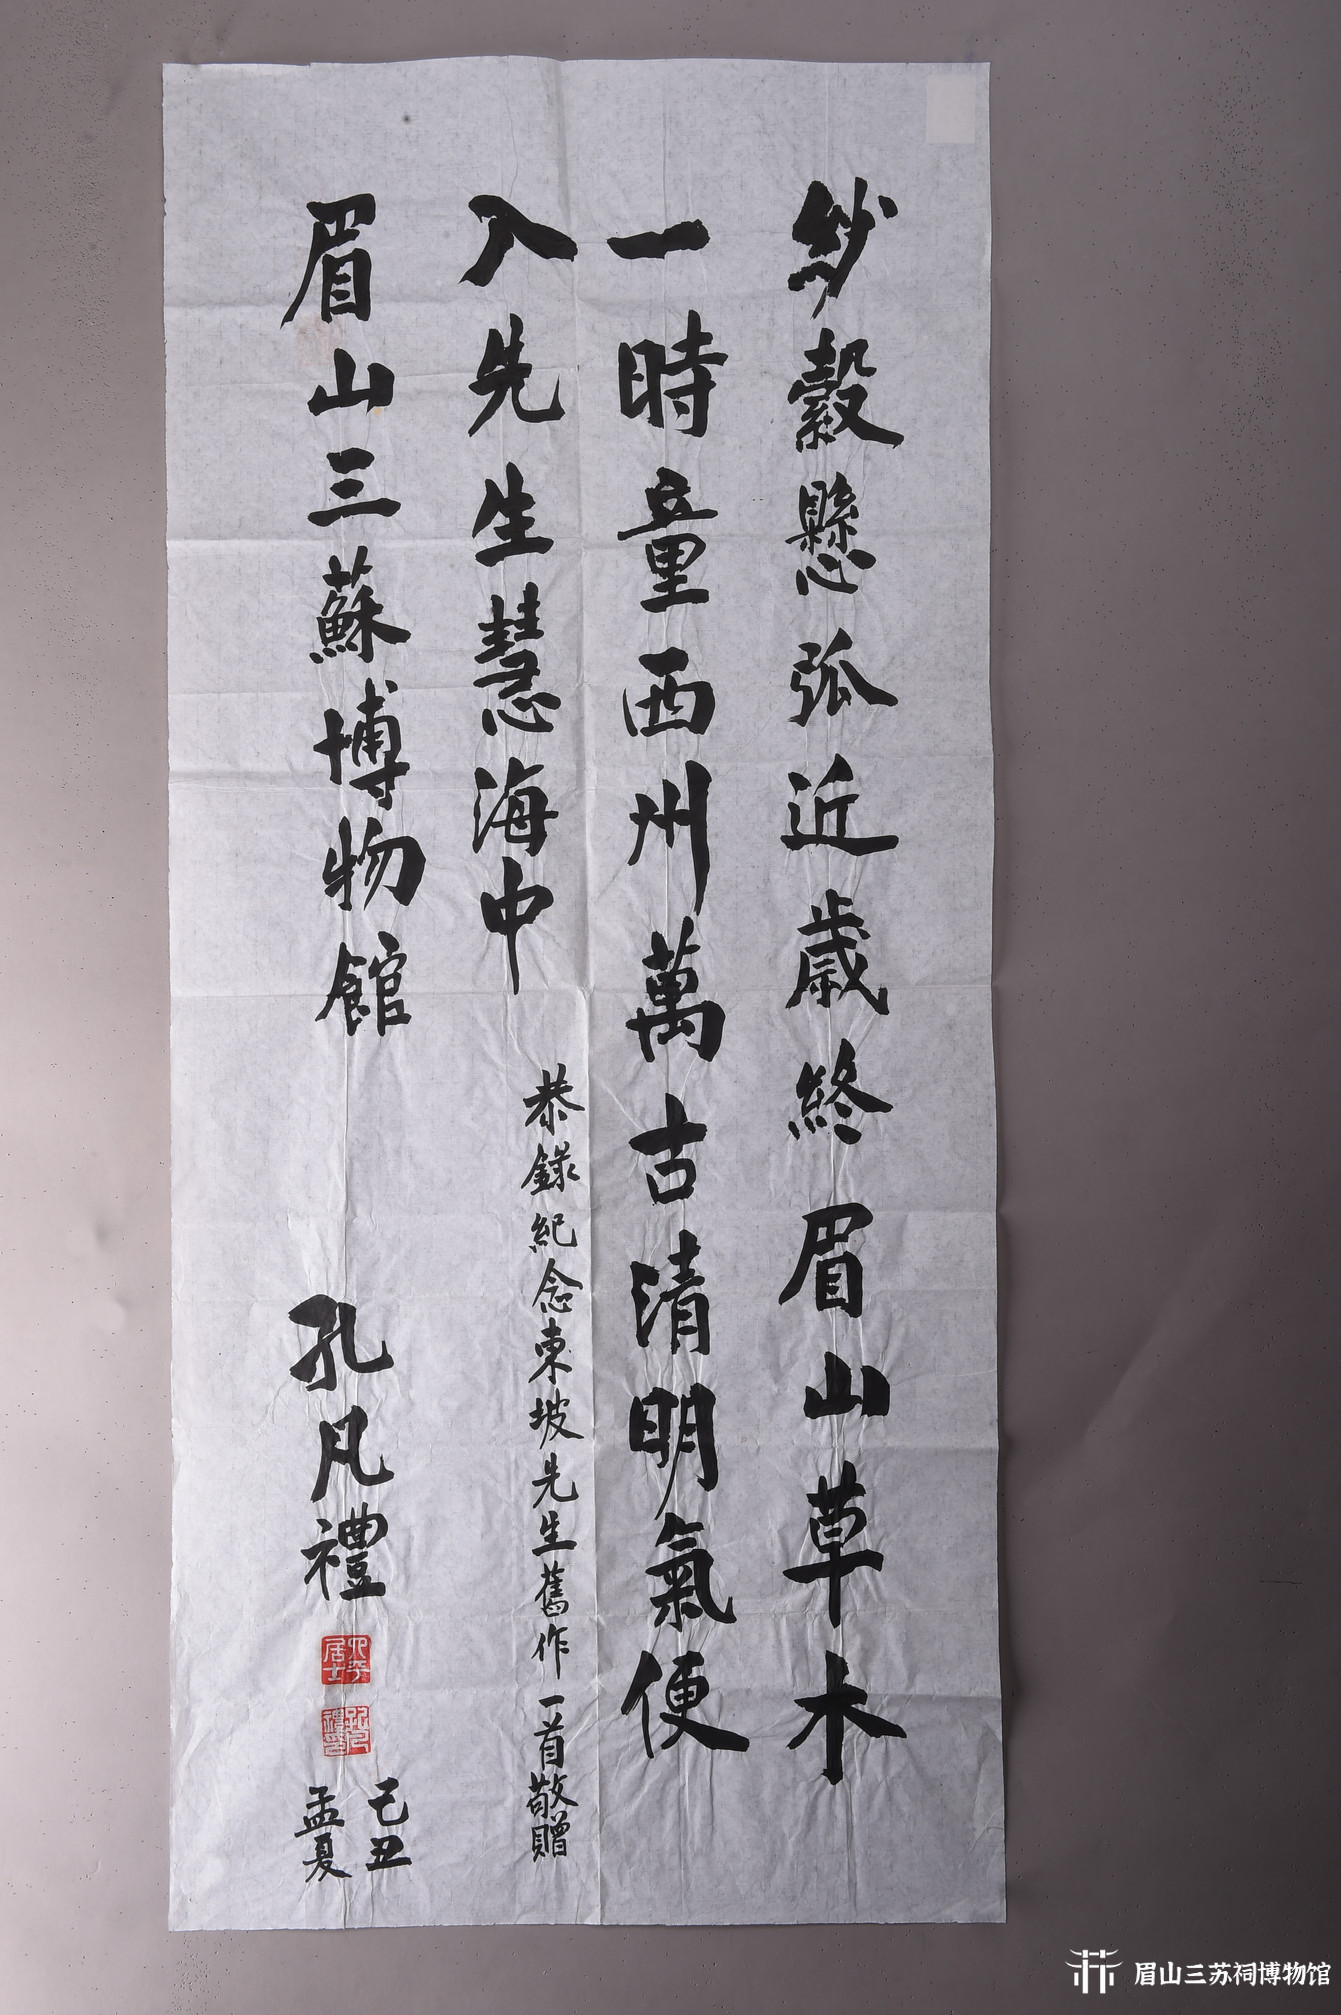 紗縠懸弧近歲終眉山草木
一時童西州萬古清明氣便
入先生慧海中
恭錄紀念東坡先生舊作一首敬贈
眉山三蘇博物館
孔凡禮
居士
己丑
孟夏
眉山三苏祠博物馆